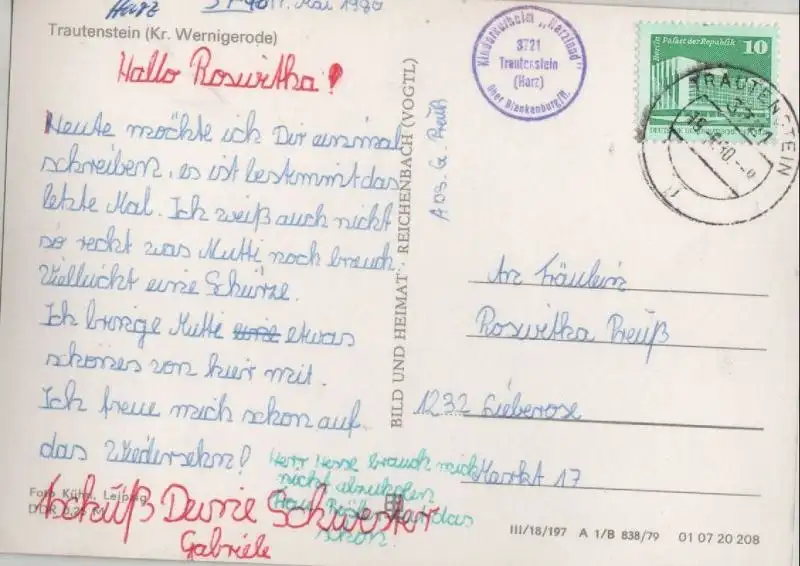 Harz
11. Mai 1980
Trautenstein (Kr. Wernigerode)
Hallo Roswitha!
Heute möchte ich Dir einmal
schreiben, es ist bestimmt das
letzte Mal. Ich weiß auch nicht
so recht was Mutti noch brauch.
Vielleicht eine Schürze.
Ich bringe Mutti eine etwas
schönes von hier mit.
Ich freue mich schon auf
das Wiedersehn!
Herr Hesse brauch mich
nicht abzuholen
Frau das
schon.
Foto Kühn, Leipzig
DDR 0,25 M
Tschüß Deine Schwester
Gabriele
BILD UND HEIMAT · REICHENBACH (VOGTL)
Abs. G. Preuß
Kinderkurheim „Harzland"
3721
Trautenstein
(Harz)
über Blankenburg/H.
Berlin Palast der Republik 10
TRAUTENSTEIN
3721
An Fräulein
Roswitha Preuß
1232 Lieberose
Markt 17
III/18/197 A 1/B 838/79 01 07 20 208